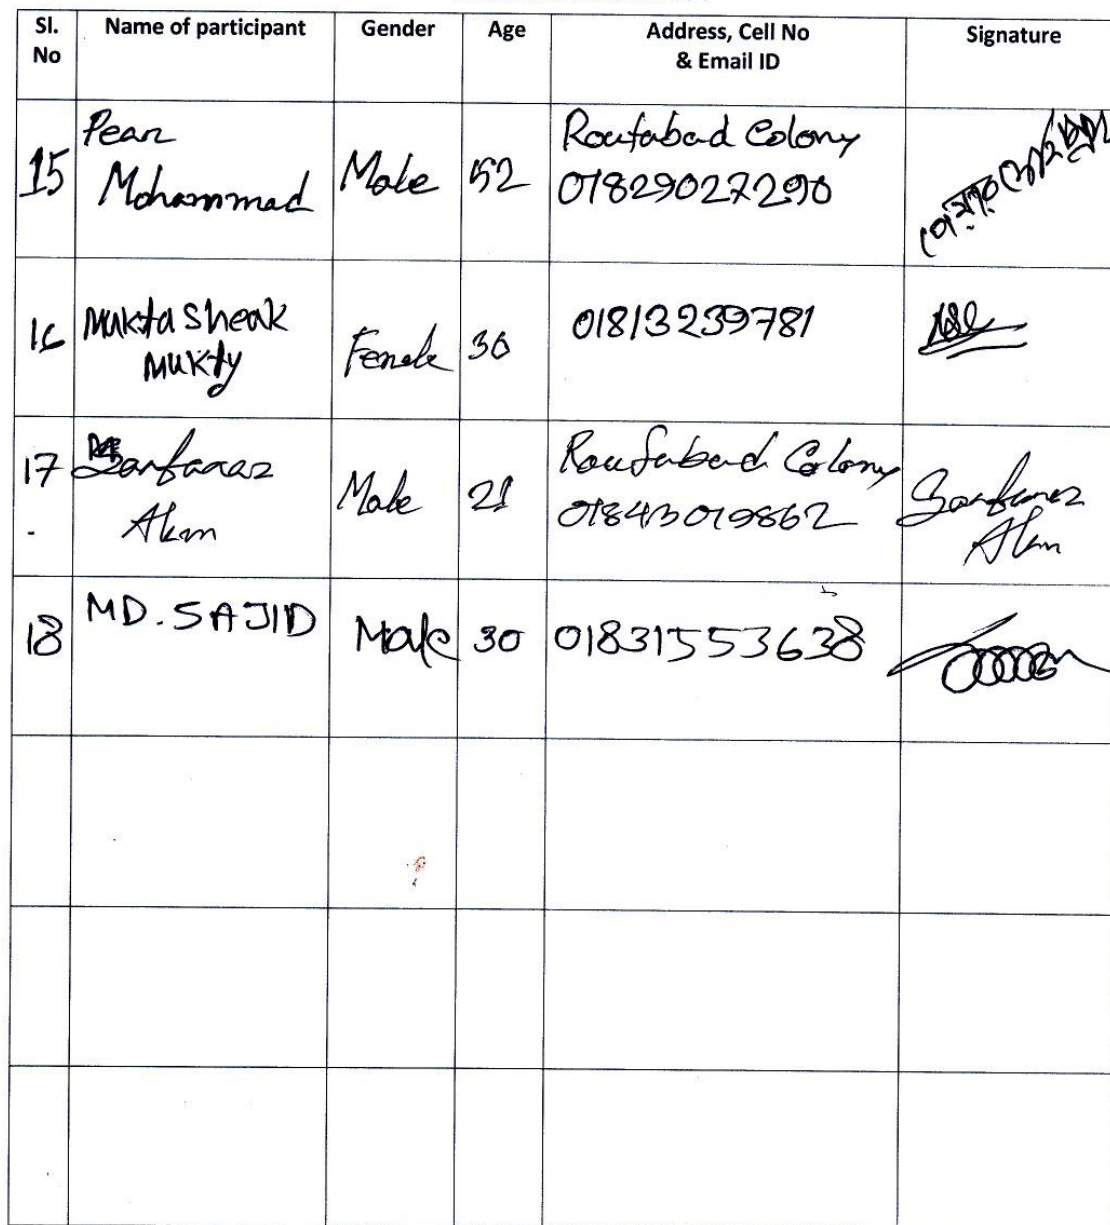 Sl. No Name of participant Gender Age Address, Cell No & Email ID Signature
15 Pear Mohammad Male 52 Roufabad Colony 01829027290
16 Mukta Sheak Mukty Female 30 01813239781
17 Sarfaraz Alam Male 21 Roufabad Colony 01843019862 Sarfaraz Alam
18 MD. SAJID Male 30 01831553638